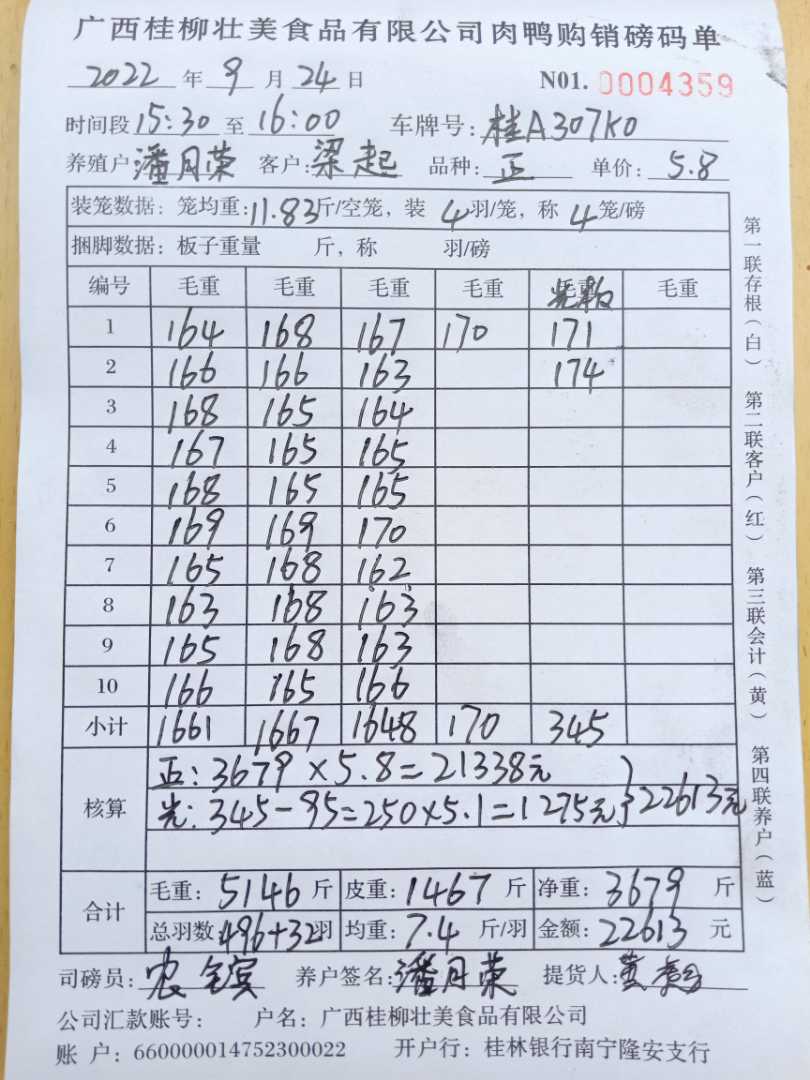 广西桂柳壮美食品有限公司肉鸭购销磅码单
2022 年 9 月 24 日 N01. 0004359
时间段 15:30 至 16:00 车牌号: 桂A307K0
养殖户 潘月荣 客户: 梁起 品种: 正 单价: 5.8
装笼数据: 笼均重: 11.83 斤/空笼, 装 4 羽/笼, 称 4 笼/磅
捆脚数据: 板子重量 斤, 称 羽/磅
编号 毛重 毛重 毛重 毛重 毛重 毛重
1 164 168 167 170 171
2 166 166 163 174
3 168 165 164
4 167 165 165
5 168 165 165
6 169 169 170
7 165 168 162
8 163 168 163
9 165 168 163
10 166 165 166
小计 1661 1667 1648 170 345
正: 3679 × 5.8 = 21338元
核算 光: 345-95=250×5.1=1275元 }22613元
合计 毛重: 5146 斤 皮重: 1467 斤 净重: 3679 斤
总羽数: 496+32羽 均重: 7.4 斤/羽 金额: 22613 元
司磅员: 农 养户签名: 潘月荣 提货人: 黄
公司汇款账号: 户名: 广西桂柳壮美食品有限公司
账 户: 660000014752300022 开户行: 桂林银行南宁隆安支行
第一联存根(白) 第二联客户(红) 第三联会计(黄) 第四联养户(蓝)